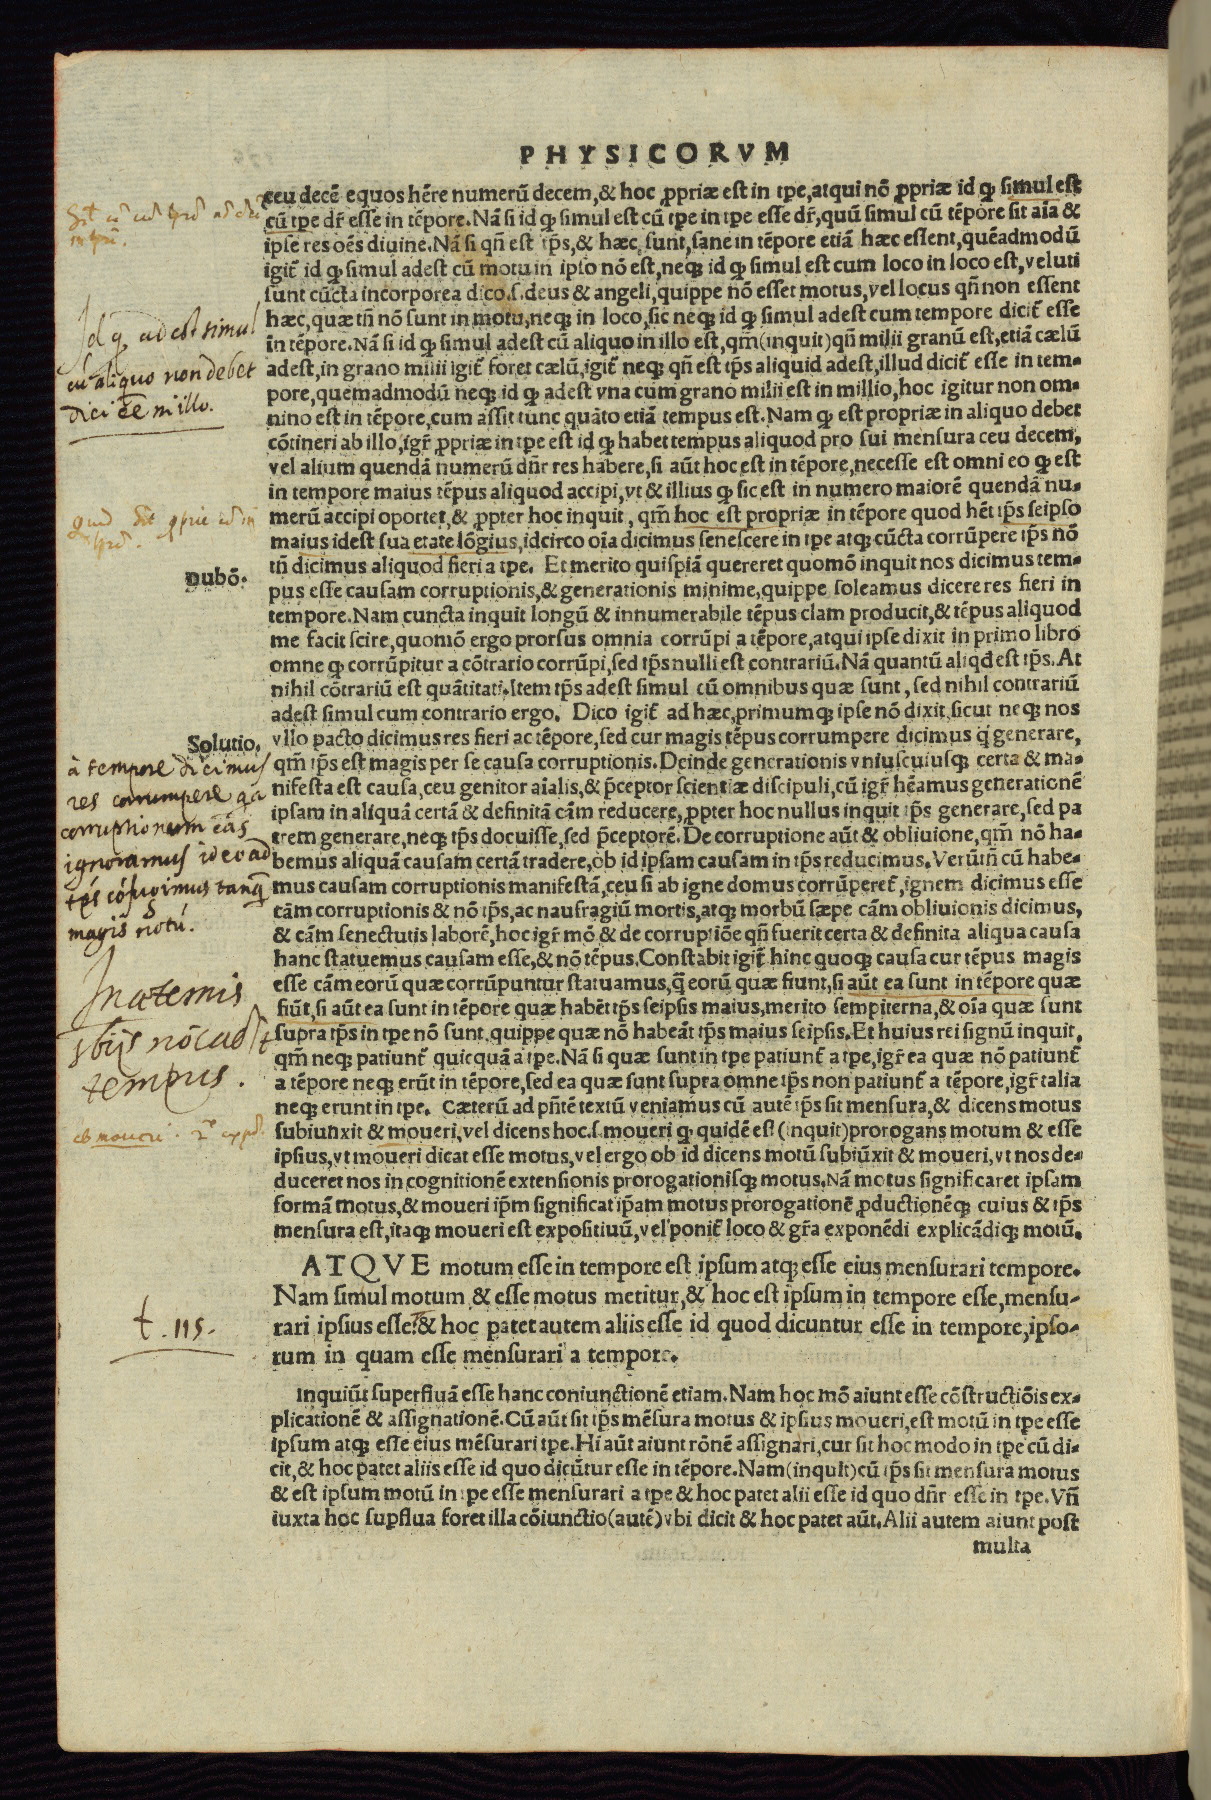 PHYSICORVM
ceu decē equos hēre numerū decem,& hoc ꝓpriæ est in tꝑe,atqui nō ꝓpriæ id ꝙ simul est
cū tꝑe dr̃ esse in tēpore.Nā si id ꝙ simul est cū tꝑe in tꝑe esse dr̃,quū simul cū tēpore sit aīa &
ipse res oēs diuine.Nā si qñ est tꝑs,& hæc sunt,sane in tēpore etiā hæc essent,quēadmodū
igiť id ꝙ simul adest cū motu in ipso nō est,neqꝫ id ꝙ simul est cum loco in loco est,veluti
sunt cūcta incorporea dico.s.deus & angeli,quippe nō esset motus,vel locus qñ non essent
hæc,quæ tñ nō sunt in motu,neqꝫ in loco,sic neqꝫ id ꝙ simul adest cum tempore diciť esse
in tēpore.Nā si id ꝙ simul adest cū aliquo in illo est,qm̃(inquit)qñ milii granū est,etiā cælū
adest,in grano milii igiť foret cælū,igiť neqꝫ qñ est tꝑs aliquid adest,illud diciť esse in tem-
pore,quemadmodū neqꝫ id ꝙ adest vna cum grano milii est in millio,hoc igitur non om-
nino est in tēpore,cum assit tunc quāto etiā tempus est.Nam ꝙ est propriæ in aliquo debet
cōtineri ab illo,igr̃ ꝓpriæ in tꝑe est id ꝙ habet tempus aliquod pro sui mensura ceu decem,
vel alium quendā numerū dñr res habere,si aūt hoc est in tēpore,necesse est omni eo ꝙ est
in tempore maius tēpus aliquod accipi,vt & illius ꝙ sic est in numero maiorē quendā nu-
merū accipi oportet,& ꝓpter hoc inquit, qm̃ hoc est propriæ in tēpore quod hēt tꝑs seipso
maius idest sua etate lōgius,idcirco oīa dicimus senescere in tꝑe atqꝫ cūcta corrūpere tꝑs nō
tñ dicimus aliquod fieri a tꝑe. Et merito quispiā quereret quomō inquit nos dicimus tem-
pus esse causam corruptionis,& generationis minime,quippe soleamus dicere res fieri in
tempore.Nam cuncta inquit longū & innumerabile tēpus clam producit,& tēpus aliquod
me facit scire,quomō ergo prorsus omnia corrūpi a tēpore,atqui ipse dixit in primo libro
omne ꝙ corrūpitur a cōtrario corrūpi,sed tꝑs nulli est contrariū.Nā quantū aliqđ est tꝑs.At
nihil cōtrariū est quātitati.Item tꝑs adest simul cū omnibus quæ sunt, sed nihil contrariū
adest simul cum contrario ergo. Dico igiť ad hæc,primumqꝫ ipse nō dixit,sicut neqꝫ nos
vllo pacto dicimus res fieri ac tēpore,sed cur magis tēpus corrumpere dicimus q̃ generare,
qm̃ tꝑs est magis per se causa corruptionis.Deinde generationis vniuscuiusqꝫ certa & ma-
nifesta est causa,ceu genitor aīalis,& p̄ceptor scientiæ discipuli,cū igr̃ hēamus generationē
ipsam in aliquā certā & definitā cām reducere,ꝓpter hoc nullus inquit tꝑs generare,sed pa
trem generare,neqꝫ tꝑs docuisse,sed p̄ceptorē.De corruptione aūt & obliuione,qm̃ nō ha-
bemus aliquā causam certā tradere,ob id ipsam causam in tꝑs reducimus.Verūtñ cū habe-
mus causam corruptionis manifestā,ceu si ab igne domus corrūpereť,ignem dicimus esse
cām corruptionis & nō tꝑs,ac naufragiū mortis,atqꝫ morbū sæpe cām obliuionis dicimus,
& cām senectutis laborē,hoc igr̃ mō & de corruptiōe qñ fuerit certa & definita aliqua causa
hanc statuemus causam esse,& nō tēpus.Constabit igiť hinc quoqꝫ causa cur tēpus magis
esse cām eorū quæ corrūpuntur statuamus,q̃ eorū quæ fiunt,si aūt ea sunt in tēpore quæ
fiūt,si aūt ea sunt in tēpore quæ habēt tꝑs seipsis maius,merito sempiterna,& oīa quæ sunt
supra tꝑs in tꝑe nō sunt,quippe quæ nō habeāt tꝑs maius seipsis.Et huius rei signū inquit,
qm̃ neqꝫ patiunť quicquā a tꝑe.Nā si quæ sunt in tꝑe patiunť a tꝑe,igr̃ ea quæ nō patiunť
a tēpore neqꝫ erūt in tēpore,sed ea quæ sunt supra omne tꝑs non patiunť a tēpore,igr̃ talia
neqꝫ erunt in tꝑe. Cæterū ad pñtē textū veniamus cū autē tꝑs sit mensura,& dicens motus
subiunxit & moueri,vel dicens hoc.s.moueri ꝙ quidē est (inquit)prorogans motum & esse
ipsius,vt moueri dicat esse motus,vel ergo ob id dicens motū subiūxit & moueri,vt nos de-
duceret nos in cognitionē extensionis prorogationisqꝫ motus.Nā motus significaret ipsam
formā motus,& moueri ip̄m significat ip̄am motus prorogationē ꝓductionēqꝫ cuius & tꝑs
mensura est,itaqꝫ moueri est expositiuū,vel poniť loco & gr̃a exponēdi explicādiqꝫ motū.
ATQVE motum esse in tempore est ipsum atqꝫ esse eius mensurari tempore.
Nam simul motum & esse motus metitur,& hoc est ipsum in tempore esse,mensu-
rari ipsius esse:& hoc patet autem aliis esse id quod dicuntur esse in tempore,ipso-
rum in quam esse mensurari a tempore.
Inquiūt superfluā esse hanc coniunctionē etiam.Nam hoc mō aiunt esse cōstructiōis ex-
plicationē & assignationē.Cū aūt sit tꝑs mēsura motus & ipsius moueri,est motū in tꝑe esse
ipsum atqꝫ esse eius mēsurari tꝑe.Hi aūt aiunt rōnē assignari,cur sit hoc modo in tꝑe cū di-
cit,& hoc patet aliis esse id quo dicūtur esse in tēpore.Nam(inquit)cū tꝑs sit mensura motus
& est ipsum motū in tꝑe esse mensurari a tꝑe & hoc patet alii esse id quo dñr esse in tꝑe.Vñ
iuxta hoc suꝑflua foret illa cōiunctio(autē)vbi dicit & hoc patet aūt.Alii autem aiunt post
multa
Id ꝙ adest simul
cū aliquo non debet
dici ēē in illo.
Dubō.
Solutio.
à tempore dicimus
res corrumpere qa
corruptionum cās
ignoramus ideo ad
tꝑs cōfugimus tanq̃
magis notū.
In æternis
rebus nō cadit
tempus.
t. 115.